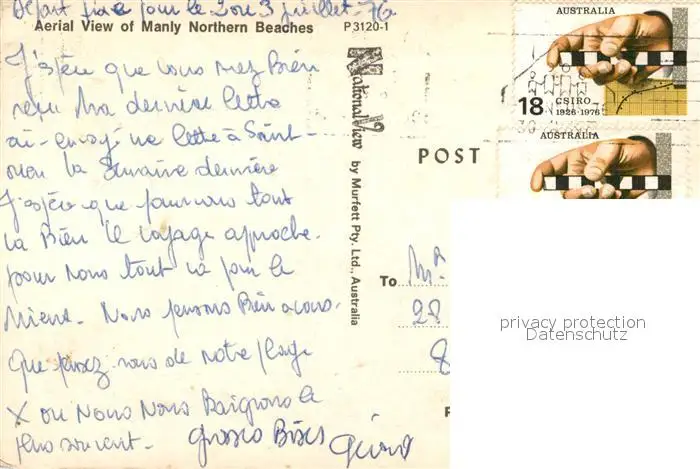 Départ fixé pour le 2 ou 3 juillet 76
Aerial View of Manly Northern Beaches P3120-1
J'espère que vous avez Bien
reçu Ma dernière lettre
ai envoyé une lettre à Saint-
ouen la Semaine dernière
J'espère que pour vous tout
va Bien le voyage approche.
pour nous tout va pour le
Mieux. Nous pensons Bien à vous.
Que pensez vous de notre plage
X où Nous Nous Baignons le
plus souvent. Grosses Bises
National View
by Murfett Pty. Ltd., Australia
POST
To Mr
28
8
AUSTRALIA
18 CSIRO
1926-1976
AUSTRALIA
privacy protection
Datenschutz